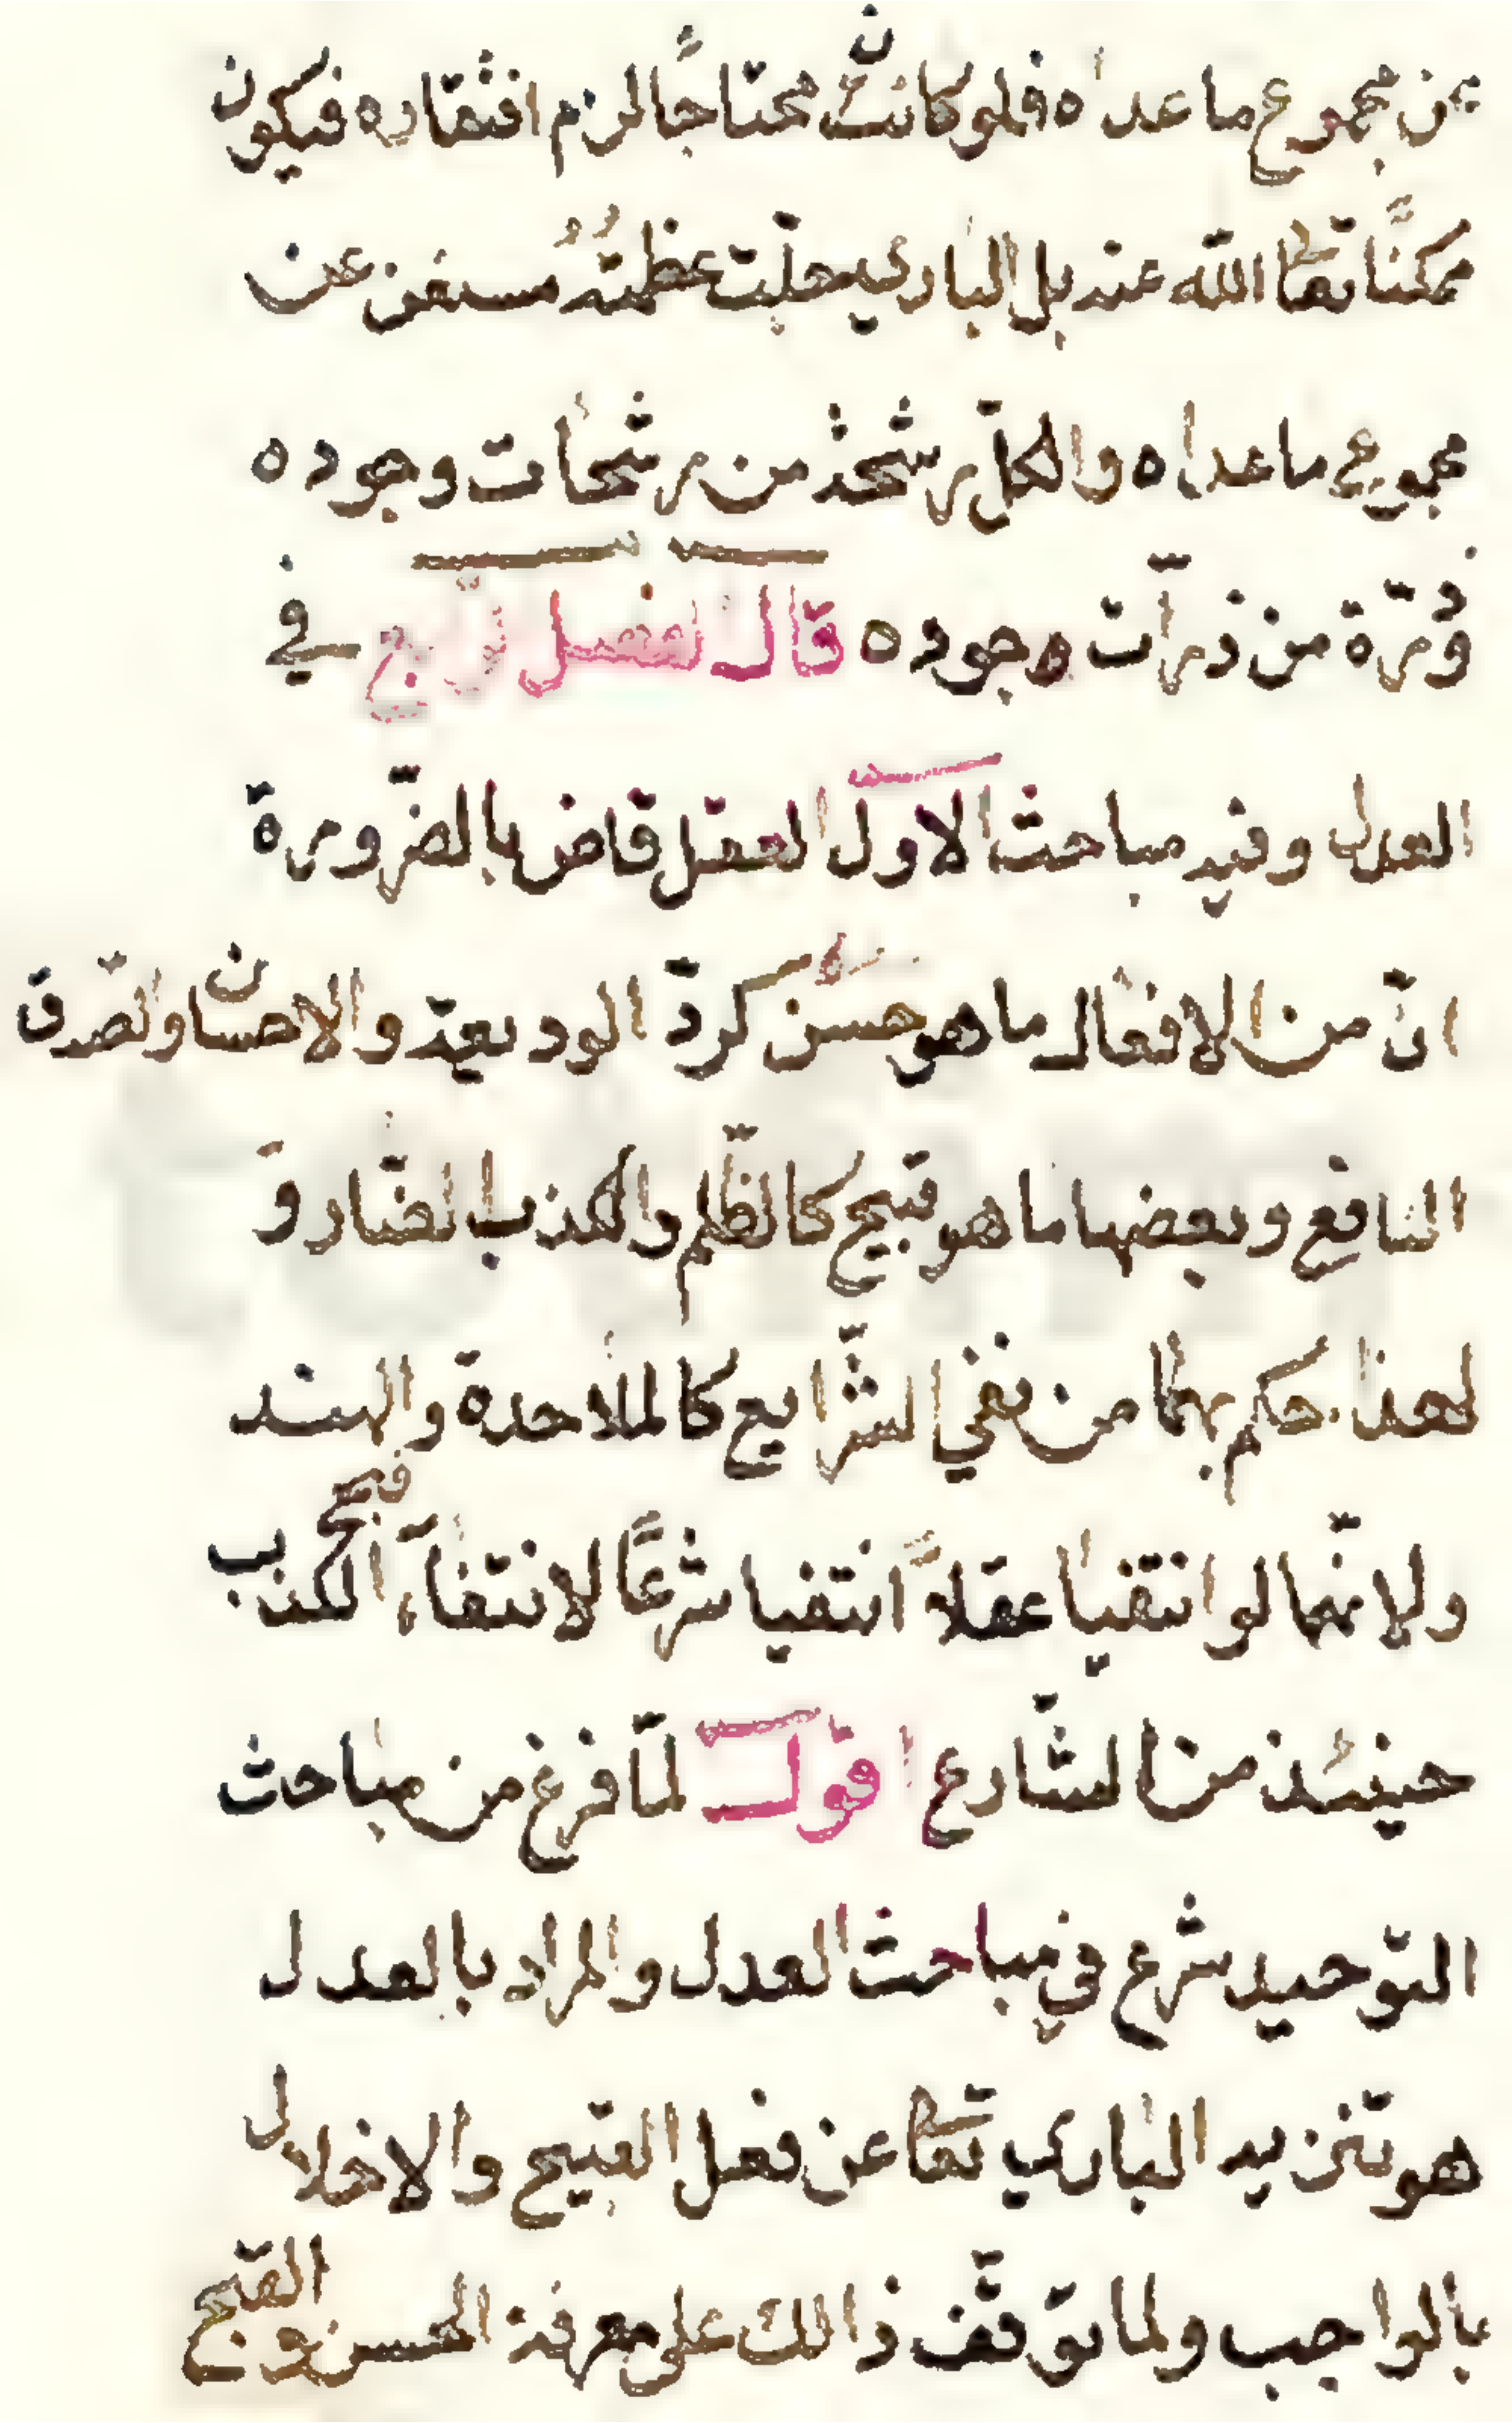 من مجموع ما عداه فلو كانت محتاجًا لزم افتقاره فيكون
ممكنًا تعا الله عنه بل الباري جلّت عظمتُهُ مستغن عن
مجموع ما عداه والكلّ رشحة من رشحات وجوده
وذرّة من ذرّات وجوده قال الفصل الرّابع في
العدل وفيه مباحث الاول العقل قاض بالضّرورة
انّ من الافعال ما هو حسن كردّ الوديعة والاحسان والصّدق
النافع وبعضها ما هو قبيح كالظّلم والكذب الضّار و
لهذا حكم بهما من نفي الشّرايع كالملاحدة والهند
ولانّهما لو انتفيا عقلاً انتفيا شرعًا لانتفاء قبح الكذب
حينئذ من الشّارع اقول لمّا فرغ من مباحث
التّوحيد شرع في مباحث العدل والمراد بالعدل
هو تنزيه الباري تعا عن فعل القبيح والاخلال
بالواجب ولما توقّف ذالك على معرفة الحسن والقبح